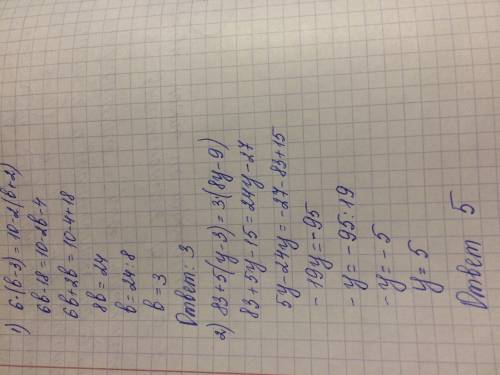 1) 6·(в-3)=10-2(в+2)
6в-18=10-2в-4
6в+2в=10-4+18
8в=24
в=24:8
в=3
Ответ: 3
2) 83+5(y-3)=3(8y-9)
83+5y-15=24y-27
5y-24y=-27-83+15
-19y=-95
-y=-95:19
-y=-5
y=5
Ответ 5